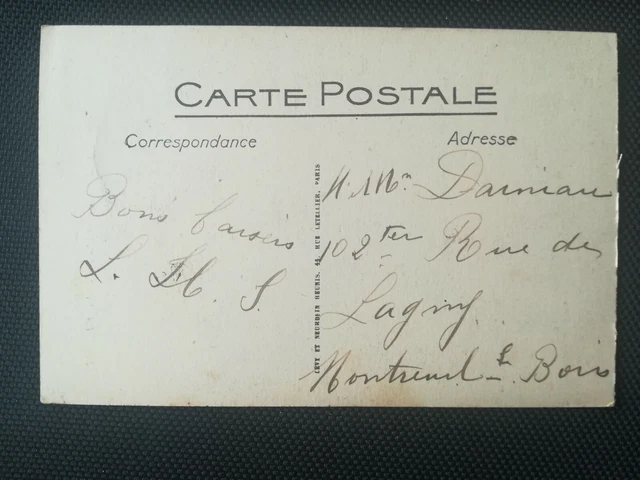 CARTE POSTALE
Correspondance
Adresse
Bons baisers
L. H. S.
LÉVY ET NEURDEIN RÉUNIS, 44, RUE LETELLIER, PARIS
M. & Mme
102 ter Rue de
Lagny
Montreuil s. Bois